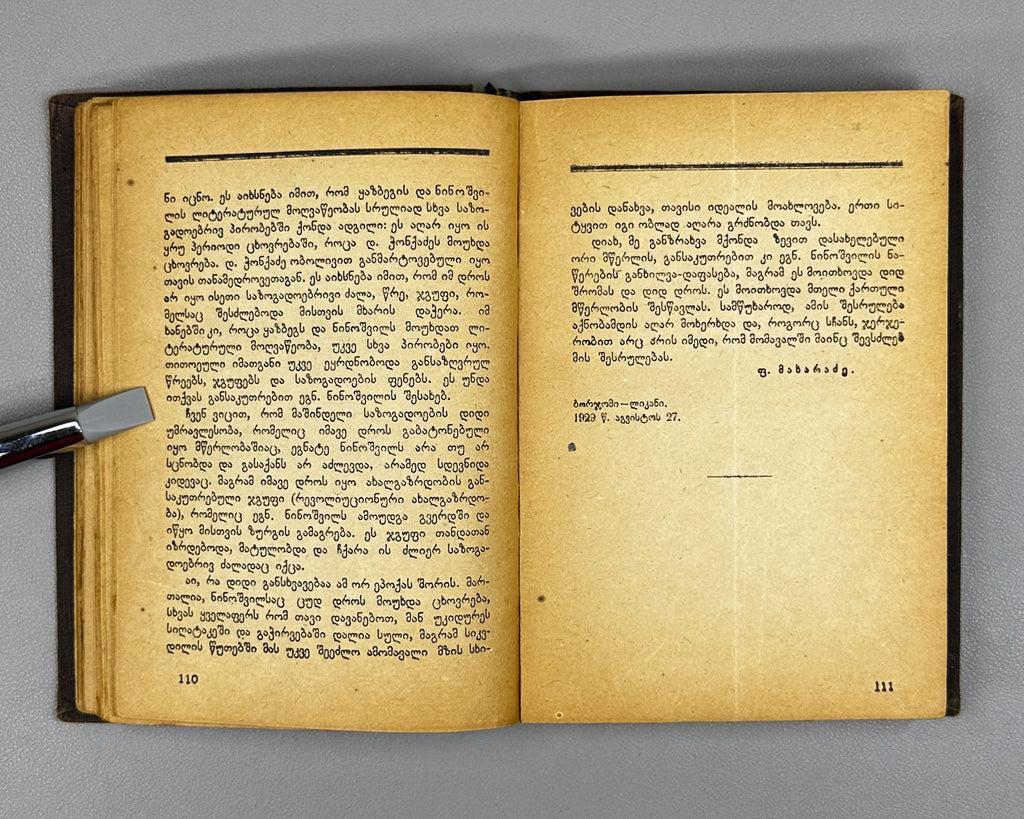 ნი იცნო. ეს აიხსნება იმით, რომ ყაზბეგის და ნინოშვი-
ლის ლიტერატურულ მოღვაწეობას სრულიად სხვა საზო-
გადოებრივ პირობებში ქონდა ადგილი: ეს აღარ იყო ის
ყრუ პერიოდი ცხოვრებაში, როცა დ. ჭონქაძეს მოუხდა
ცხოვრება. დ. ჭონქაძე ობოლივით განმარტოვებული იყო
თავის თანამედროვეთაგან. ეს აიხსნება იმით, რომ იმ დროს
არ იყო ისეთი საზოგადოებრივი ძალა, წრე, ჯგუფი, რო-
მელსაც შესძლებოდა მისთვის მხარის დაჭერა. იმ
ხანებში კი, როცა ყაზბეგს და ნინოშვილს მოუხდათ ლი-
ტერატურული მოღვაწეობა, უკვე სხვა პირობები იყო.
თითოეული იმათგანი უკვე ეყრდნობოდა განსაზღვრულ
წრეებს, ჯგუფებს და საზოგადოების ფენებს. ეს უნდა
ითქვას განსაკუთრებით ეგნ. ნინოშვილის შესახებ.
ჩვენ ვიცით, რომ მაშინდელი საზოგადოების დიდი
უმრავლესობა, რომელიც იმავე დროს გაბატონებული
იყო მწერლობაშიაც, ეგნატე ნინოშვილს არა თუ არ
სცნობდა და გასაქანს არ აძლევდა, არამედ სდევნიდა
კიდევაც. მაგრამ იმავე დროს იყო ახალგაზრდობის გან-
საკუთრებული ჯგუფი (რევოლიუციონური ახალგაზრდო-
ბა), რომელიც ეგნ. ნინოშვილს ამოუდგა გვერდში და
იწყო მისთვის ზურგის გამაგრება. ეს ჯგუფი თანდათან
იზრდებოდა, მატულობდა და ჩქარა ის ძლიერ საზოგა-
დოებრივ ძალადაც იქცა.
აი, რა დიდი განსხვავებაა ამ ორ ეპოქას შორის. მარ-
თალია, ნინოშვილსაც ცუდ დროს მოუხდა ცხოვრება,
სხვას ყველაფერს რომ თავი დავანებოთ, მან უკიდურეს
სიღატაკეში და გაჭირვებაში დალია სული, მაგრამ სიკვ-
დილის წუთებში მას უკვე შეეძლო ამომავალი მზის სხი-
110
ვების დანახვა, თავისი იდეალის მოახლოვება. ერთი სი-
ტყვით იგი ობლად აღარა გრძნობდა თავს.
დიახ, მე განზრახვა მქონდა ზევით დასახელებული
ორი მწერლის, განსაკუთრებით კი ეგნ. ნინოშვილის ნა-
წერების განხილვა-დაფასება, მაგრამ ეს მოითხოვდა დიდ
შრომას და დიდ დროს. ეს მოითხოვდა მთელი ქართული
მწერლობის შესწავლას. სამწუხაროდ, ამის შესრულება
აქნობამდის აღარ მოხერხდა და, როგორც სჩანს, ჯერჯე-
რობით არც არის იმედი, რომ მომავალში მაინც შევსძლებ
მის შესრულებას.
ფ. მახარაძე.
ბორჯომი—ლიკანი.
1929 წ. აგვისტოს 27.
111